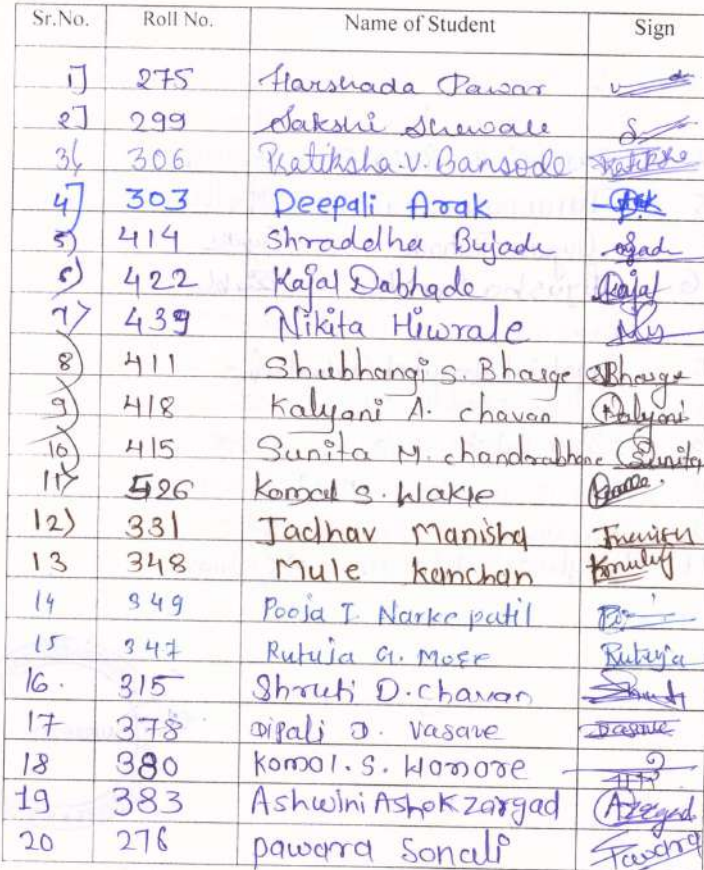 Sr.No. Roll No. Name of Student Sign
1] 275 Harshada Pawar
2] 299 Sakshi Shewale
3( 306 Pratiksha.V.Bansode Pratiksha
4] 303 Deepali Arak
5) 414 Shraddha Bujade
6) 422 Kajal Dabhade Kajal
7> 439 Nikita Hiwrale
8) 411 Shubhangi S. Bharge Bharge
9) 418 Kalyani A. chavan Kalyani
10) 415 Sunita M. chandrabhane Sunita
11> 526 Komal S. Wakle
12) 331 Jadhav Manisha
13 348 Mule Kanchan
14 349 Pooja T. Narke patil
15 347 Rutuja G. More Rutuja
16. 315 Shruti D. chavan
17 378 Dipali D. Vasave
18 380 Komal. S. Honore
19 383 Ashwini Ashok zargad
20 276 pawara Sonali Pawara